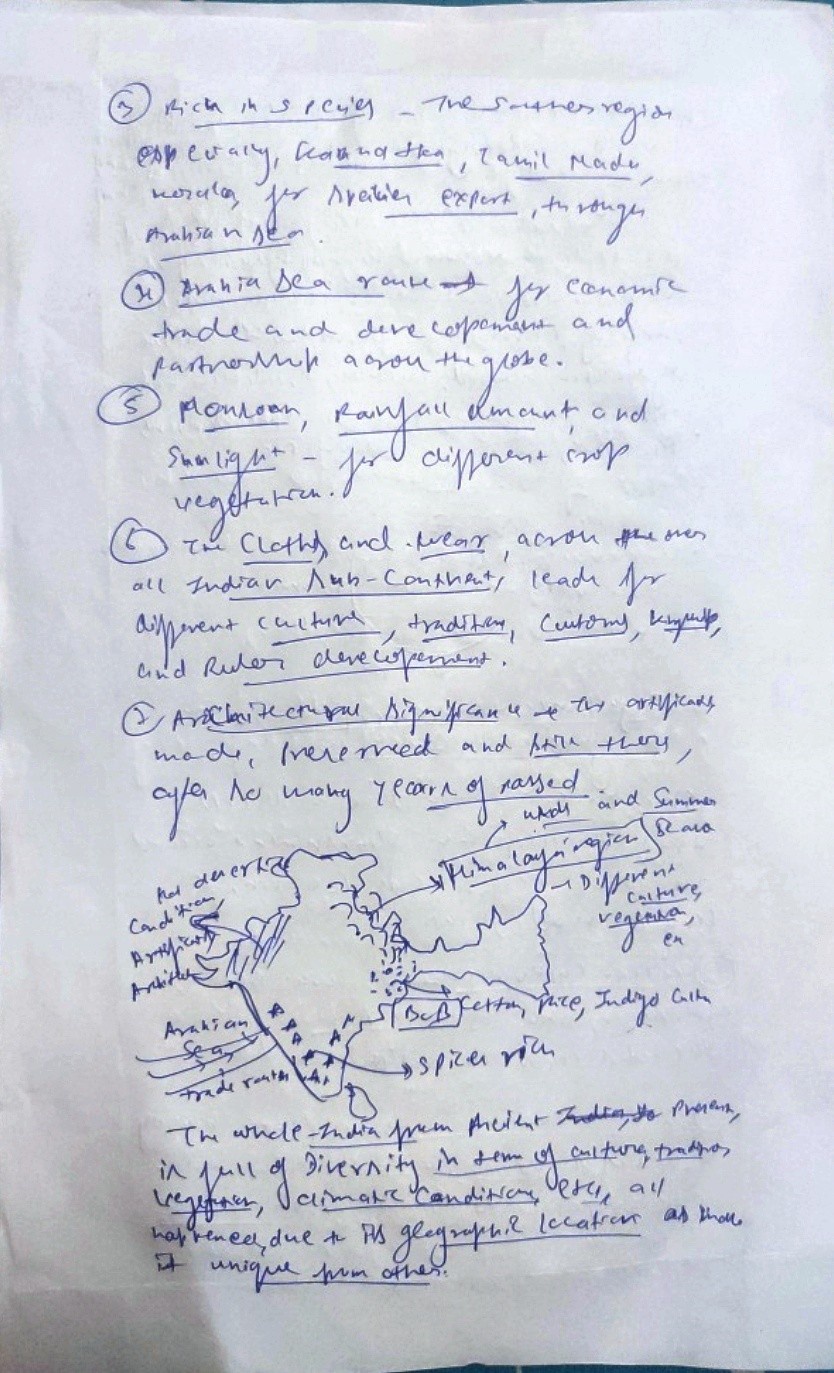 ③ Rich in species - The Southern region
especially, Karnataka, Tamil Nadu,
Kerala, for species export, through
Arabian Sea.
④ Arabia Sea route → for economic
trade and developement and
partnership across the globe.
⑤ Monsoon, Rainfall amount, and
Sunlight - for different crop
vegetation.
⑥ The Cloths and wear, across the over
all Indian Sub-Continent, leads for
different culture, tradition, Customs,
and Ruler developement.
⑦ Architectural Significance → The artificats
made, Preserved and still there,
after so many years of passed
and Summer
Himalaya region
→ Different
culture,
vegetation,
Hot desertic
Condition,
Artificats
Architec
BoB Cotton, rice, Indigo Culti
Arabian
Sea
trade routes
→ Spices rich
The whole India from Ancient to Present,
is full of Diversity in term of culture, tradition,
vegetation, climatic Condition, etc, all
happened, due to its geographic location
it unique from others.